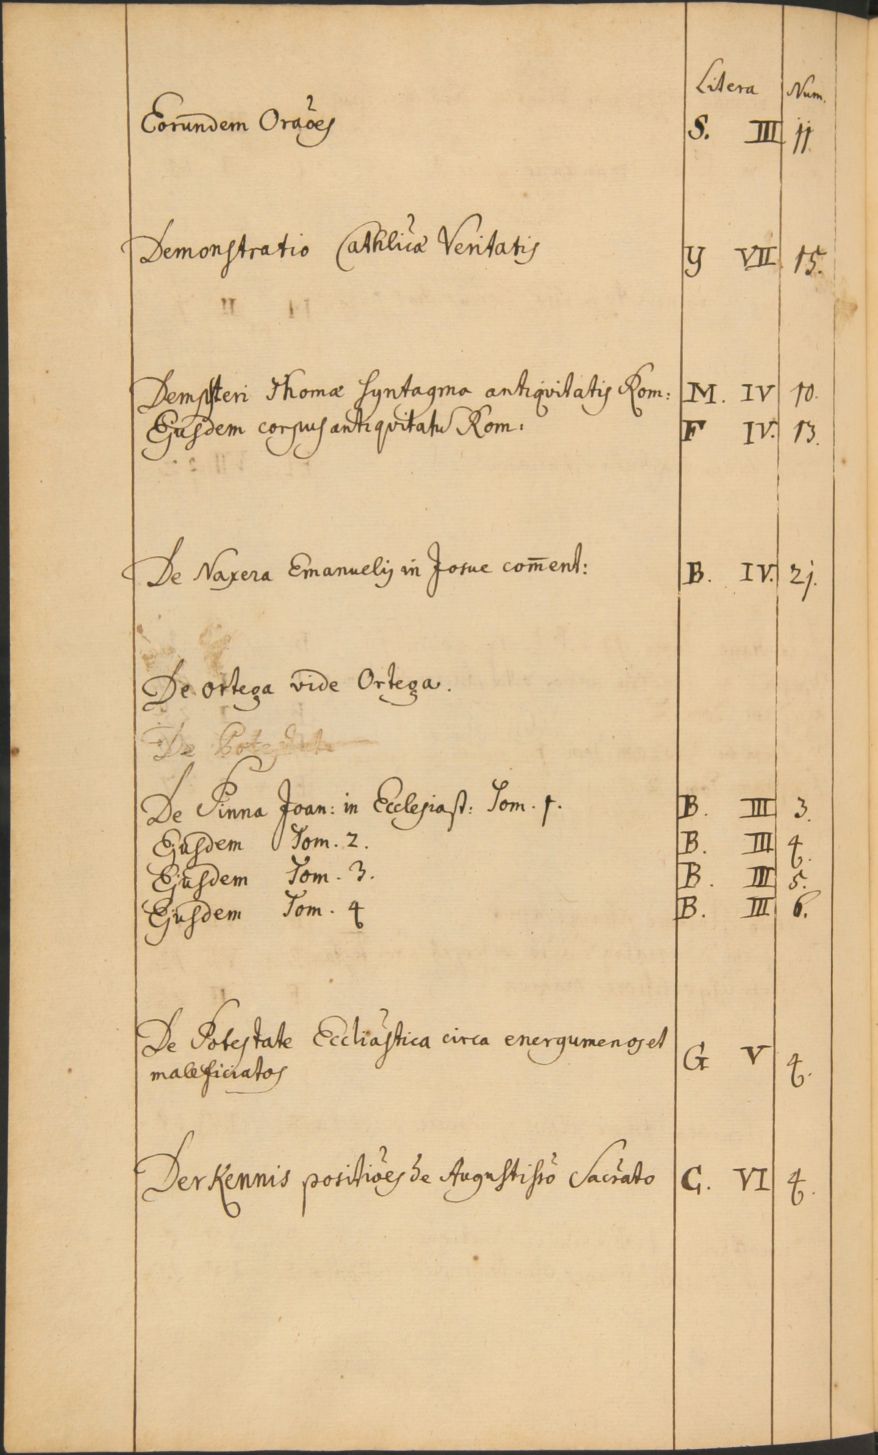 Litera Num.
Eorundem Orãoes S. III 11.
Demonstratio Cathlicæ Veritatis Y VII 15.
Dempsteri Thomæ syntagma antiqvitatis Rom: M. IV 10.
Ejusdem corpus antiqvitatũ Rom: F IV. 13.
De Naxera Emanuelis in Josue com̄ent: B. IV. 21.
De ortega vide Ortega.
De Potestate
De Pinna Joan: in Ecclesiast: Tom. 1. B. III 3.
Ejusdem Tom. 2. B. III 4.
Ejusdem Tom. 3. B. III 5.
Ejusdem Tom. 4 B. III 6.
De Potestate Eccliastica circa energumenos et
maleficiatos G V 4.
Derkennis positiões de Augustissõ Sacrato C. VI 4.